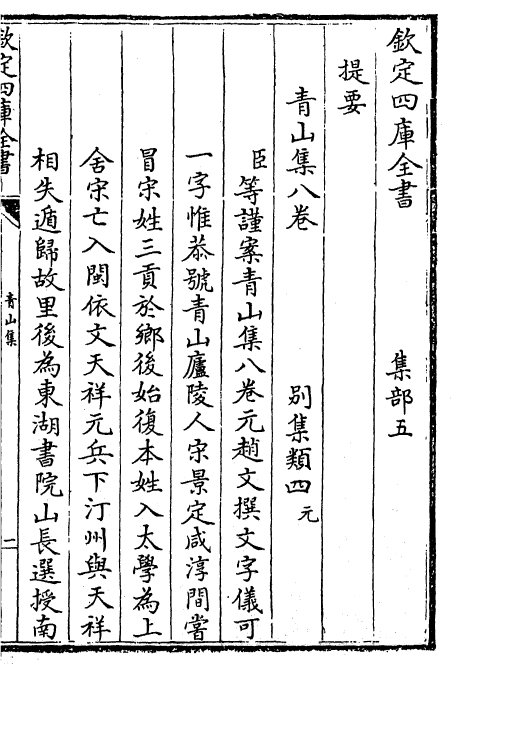 欽定四庫全書　集部五
提要
青山集八卷　別集類四元
臣等謹案青山集八卷元趙文撰文字儀可
一字惟恭號青山廬陵人宋景定咸淳間嘗
冒宋姓三貢於鄉後始復本姓入太學為上
舍宋亡入閩依文天祥元兵下汀州與天祥
相失遁歸故里後為東湖書院山長選授南
欽定四庫全書　青山集　二